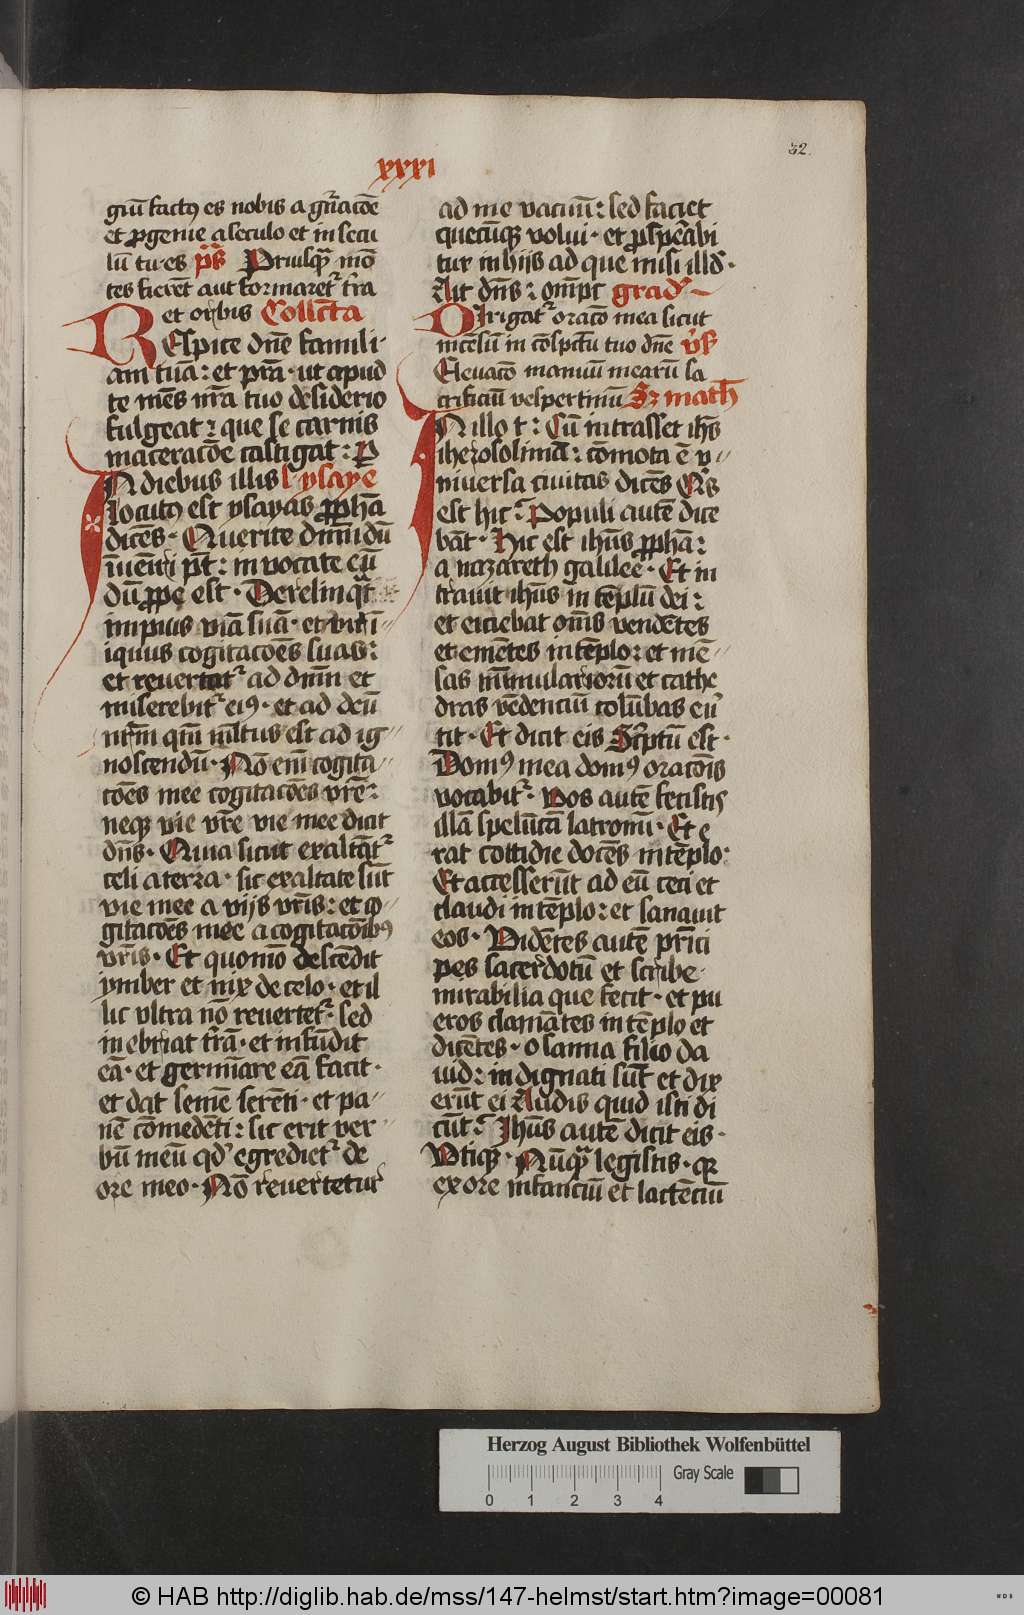 32.
xxxi
giū factꝰ es nobis a gn̄acōe
et ꝓgenie a seculo et in secu
lū tu es p̄s Priusqᷓ mō
tes fierēt aut formaretᷣ t̄ra
et orbis Collcta
REspice dn̄e famili
am tuā: et p̄ra · ut apud
te mēs nr̄a tuo desiderio
fulgeat: que se carnis
maceracōe castigat: P
IN diebus illis l ysaye
locutꝰ est ysayas ꝓphā
dicēs · Querite dn̄m dū
īuenīri pt̄: invocate eū
dū ꝓpe est · Derelinqᷓt
impius viā suā · et vir ī
iquus cogitacōes suas:
et revertatᷣ ad dn̄m et
miserebitᷣ eiꝰ · et ad deū
nr̄m qm̄ ml̄tus est ad ig
noscendū · Nō em̄ cogita
cōes mee cogitacōes vr̄e:
neqꝫ vie vr̄e vie mee dicit
dn̄s · Quia sicut exaltātᷣ
celi a terra · sic exaltate sūt
vie mee a vijs vr̄is: et co
gitacōes mee a cogitacōibꝰ
vr̄is · Et quomō descēdit
ymber et nix de celo · et il
lic ultra nō revertetᷣ · sed
inebriat t̄rā · et infūdit
eā · et germinare eā facit ·
et dat semē serēti · et pa
nē cōmedēti: sic erit ver
bū meū qd' egredietᷣ de
ore meo · Nō revertetur
ad me vacuū: sed faciet
quecūqꝫ volui · et ꝓsperabi
tur in hijs ad que misi illd' ·
Ait dn̄s: om̄pc grad'
DIrigatᷣ orācō mea sicut
incēsū in cōspctū tuo dn̄e v̓s
Elevacō manuū mearū sa
crificiū vespertinū Sz math
IN illo t: Cū intrasset ih̄s
iherosolimā: cōmota ē v
niversa civitas dicēs Qis
est hic: Populi autē dice
bāt · Hic est ihūs ꝓphā:
a nazareth galilee · Et in
travit ihūs in tēplū dei:
et eiciebat om̄s vendētes
et emētes in tēplo: et mē
sas nūmulariorū et cathe
dras vēdenciū colūbas ev̓
tit · Et dicit eis Sc̓ptū est ·
Domꝰ mea domꝰ oracōis
vocabitᷣ · vos autē fecistis
illā spelūcā latronū · Et e
rat cottidie docēs in tēplo:
Et accesserūt ad eū ceci et
claudi in tēplo: et sanavit
eos · Vidētes autē prīci
pes sacerdotū et scribe
mirabilia que fecit · et pu
eros clamātes in tēplo et
dicētes · Osanna filio da
vid: indignati sūt et dix
erūt ei Audis quid isti di
cūt: Ihūs autē dicit eis ·
Utiqꝫ · Nūqᷓ legistis · qꝛ
ex ore infanciū et lactēciū
Herzog August Bibliothek Wolfenbüttel
Gray Scale
0 1 2 3 4
© HAB http://diglib.hab.de/mss/147-helmst/start.htm?image=00081